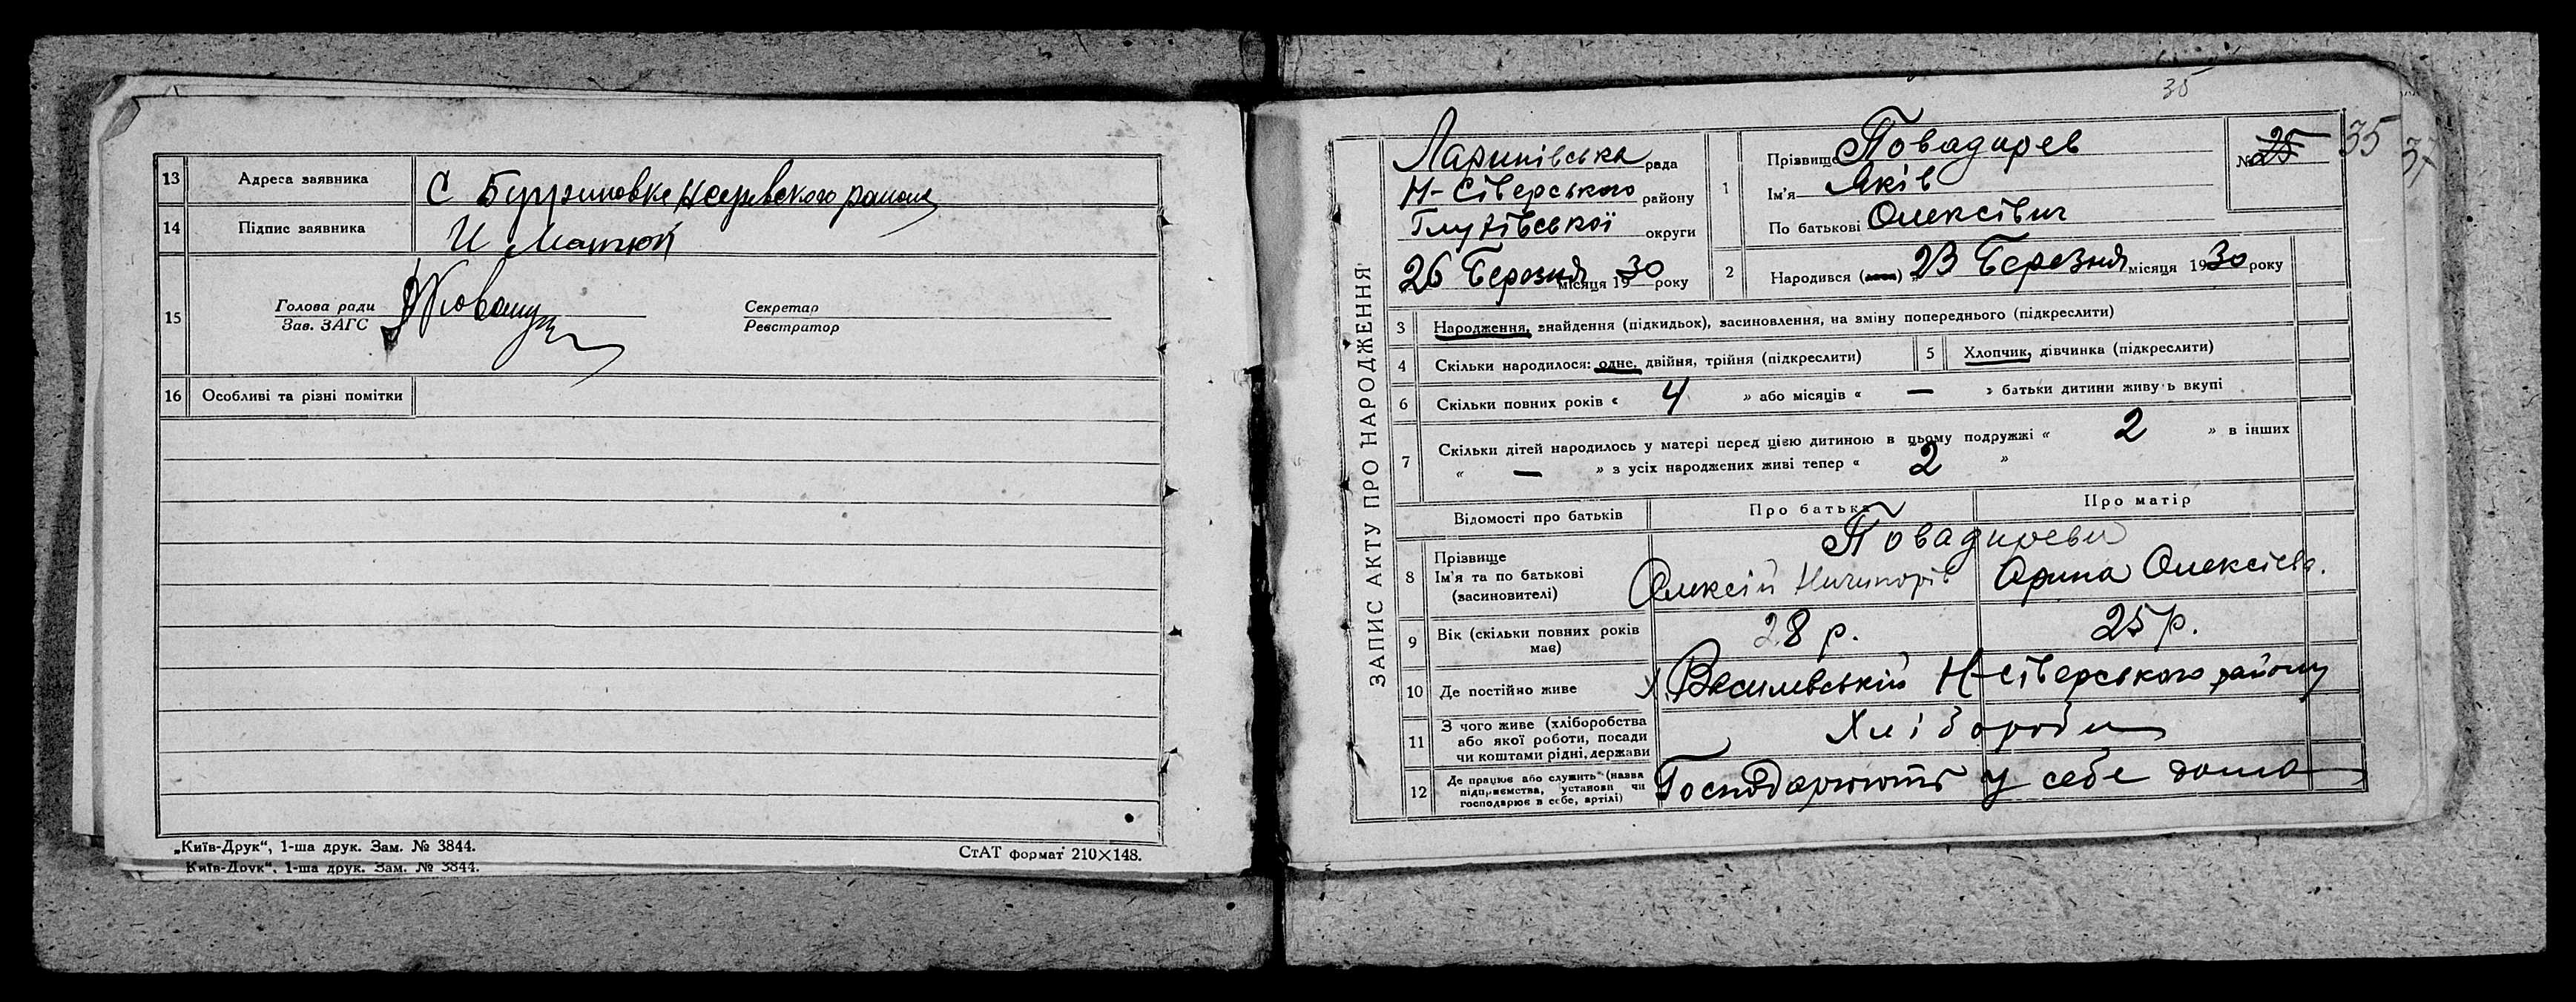 13 Адреса заявника С Бугриновке Н севского района
14 Підпис заявника И
15 Голова ради Секретар
Зав. ЗАГС Реєстратор
16 Особливі та різні помітки
„Київ-Друк“, 1-ша друк. Зам. № 3844. СтАТ формат 210×148.
Київ-Друк“, 1-ша друк. Зам. № 3844.
35
35
37
ЗАПИС АКТУ ПРО НАРОДЖЕННЯ
Ларинівська рада
Н-Сіверського району
Глухівської округи
26 Березня місяця 1930 року
1 Прізвище Повадирев
Ім'я Яків
По батькові Олексієвич
№ 25
2 Народився 23 Березня місяця 1930 року
3 Народження, знайдення (підкидьок), засиновлення, на зміну попереднього (підкреслити)
4 Скільки народилося: одне, двійня, трійня (підкреслити) 5 Хлопчик, дівчинка (підкреслити)
6 Скільки повних років « 4 » або місяців « — » батьки дитини живуть вкупі
7 Скільки дітей народилось у матері перед цією дитиною в цьому подружжі « 2 » в інших
« — » з усіх народжених живі тепер « 2 »
Відомості про батьків Про батька Про матір
8 Прізвище Повадиреви
Ім'я та по батькові Олексій Ничипорів Орина Олексієв.
(засиновителі)
9 Вік (скільки повних років має) 28 р. 25 р.
10 Де постійно живе х Василевський Н-Сіверського району
11 З чого живе (хліборобства або якої роботи, посади чи коштами рідні, держави Хлібороби
12 Де працює або служить (назва підприємства, установи чи господарює в себе, артілі) Господарюють у себе дома